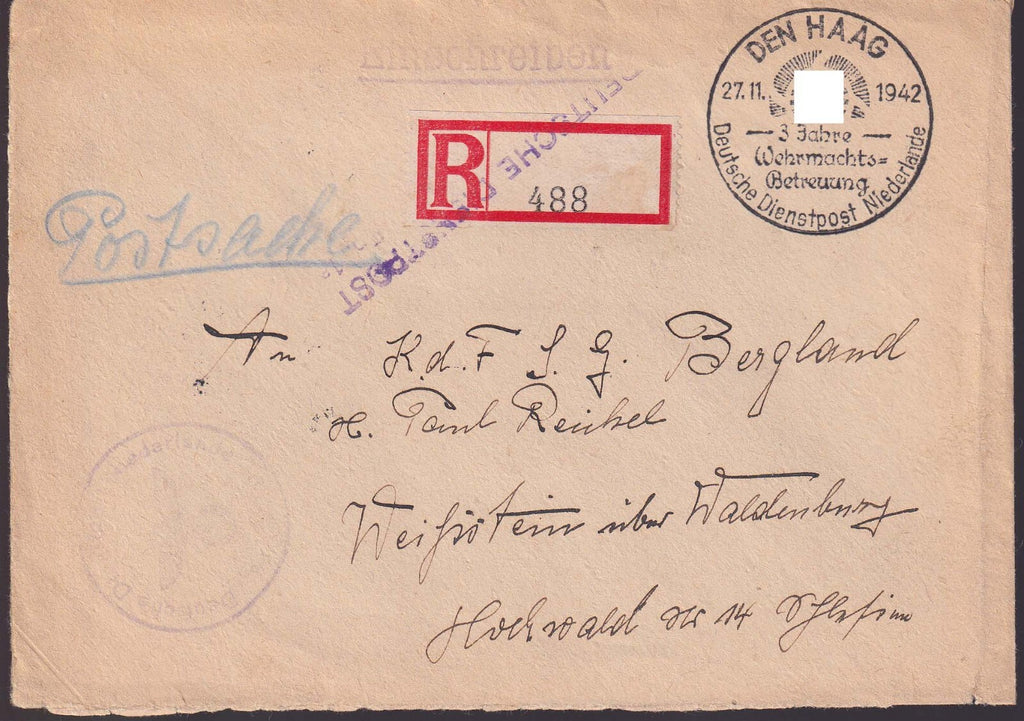 Einschreiben
DEN HAAG
27.11. 1942
3 Jahre
Wehrmachts=
Betreuung
Deutsche Dienstpost Niederlande
R
488
DEUTSCHE DIENSTPOST
Postsache
An K.d.F S. G. Bergland
H. Paul Reichel
Weißstein über Waldenburg
Hochwald str 14 Schlesien
Niederlande
Deutsche D